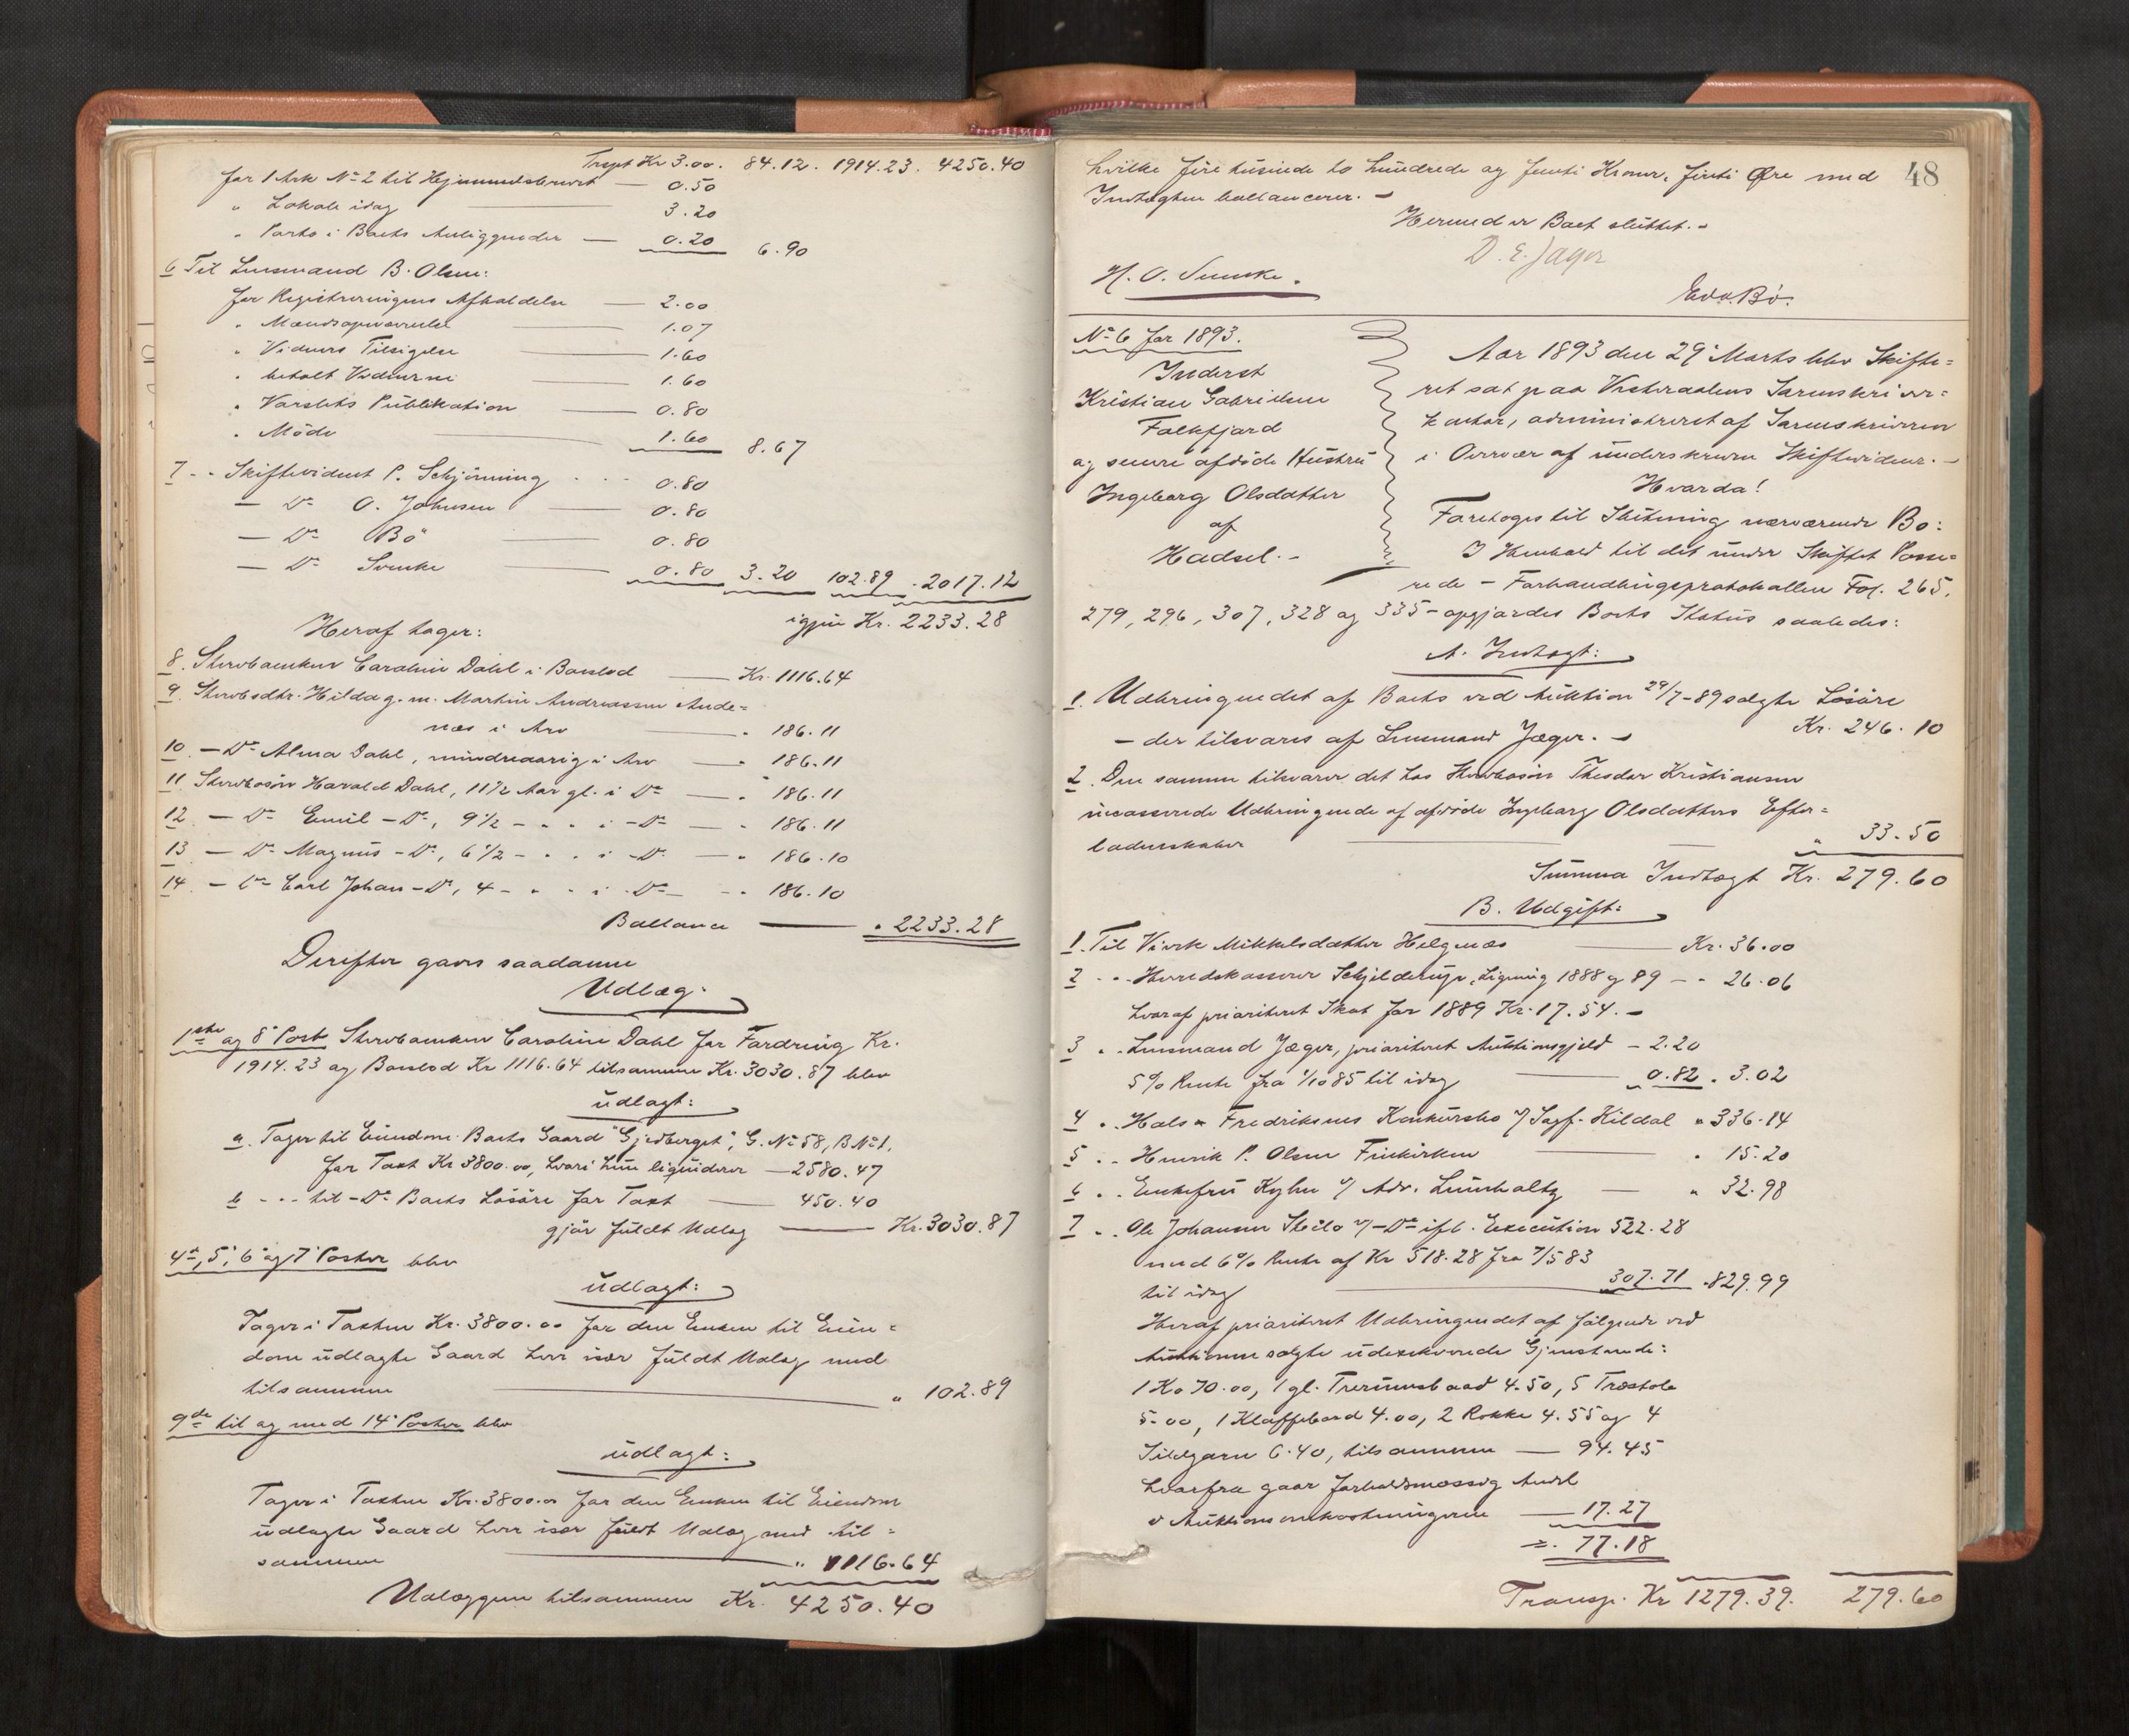 Trspt Kr 3.00. 84.12. 1914.23. 4250.40
for 1 Ark No 2 til Hjemmelsbrevet — 0.50
" Lokale idag — 3.20
" Porto i Boets Anliggender — 0.20 6.90
6 Til Lensmand B. Olsen:
for Registreringens Afholdelse — 2.00
" Mændsopnævnelse — 1.07
" Vidners Tilsigelse — 1.60
" betalt Vidnerne — 1.60
" Varslets Publikation — 0.80
" Möde — 1.60 8.67
7 - - Skiftevidnet P. Schjönning - - - 0.80
— Do O. Johnsen — 0.80
— Do Bö — 0.80
— Do Svenke — 0.80 3.20 102.89 . 2017.12
igjen Kr. 2233.28
Heraf tager:
8. Stervboenken Caroline Dahl i Boeslod — Kr. 1116.64
9. Stervbodtr. Hilda g. m. Martin Andreassen Ande=
næs i Arv — " 186.11
10. — Do Alma Dahl, mindreaarig i Arv — " 186.11
11. Stervbosön Harald Dahl, 11½ Aar gl. i Do — " 186.11
12. — Do Emil — Do, 9½ - " " i - Do — " 186.11
13 — Do Magnus — Do, 6½ - " " i - Do — " 186.10
14. — Do Carl Johan — Do, 4 - " " i - Do — " 186.10
Ballance — " 2233.28
Derefter gaves saadanne
Udlæg:
1ste og 8de Post Stervboenken Caroline Dahl for Fordring Kr.
1914.23 og Boeslod Kr 1116.64 tilsammen Kr. 3030.87 blev
udlagt:
a. Tager til Eiendom Boets Gaard "Gjedberget", G. No 58, B No 1,
for Taxt Kr 3800.00, hvori hun liqviderer — 2580.47
b - - - til - Do Boets Lösöre for Taxt — 450.40
gjör fuldt Udlæg — Kr. 3030.87
4de, 5te, 6te og 7de Poster blev
udlagt:
Tager i Taxten Kr. 3800.00 for den Enken til Eien=
dom udlagte Gaard hver især fuldt Udlæg med
tilsammen — " 102.89
9de til og med 14de Poster blev
udlagt:
Tager i Taxten Kr. 3800.00 for den Enken til Eiendom
udlagte Gaard hver især fuldt Udlæg med til=
sammen — " 1116.64
Udlæggene tilsammen Kr. 4250.40
48
hvilke fire tusinde to hundrede og femti Kroner, firti Öre med
Indtægten ballancerer. —
Hermed er Boet sluttet. —
D. E. Jæger
H. O. Svenke.
Edv. Bö.
No 6 for 1893.
Inderst
Kristian Gabrielsen
Falkfjord
og senere afdöde Hustru
Ingeborg Olsdatter
af
Hadsel. —
Aar 1893 den 29de Marts blev Skifte=
ret sat paa Vesteraalens Sorenskriver=
kontor, administreret af Sorenskriveren
i Overvær af underskrevne Skiftevidner. —
Hvorda!
Foretoges til Slutning nærværende Bo:
I Henhold til det under Skiftet Passe=
rede — Forhandlingsprotokollen Fol. 265,
279, 296, 307, 328 og 335 — opgjordes Boets Status saaledes:
A. Indtægt:
1. Udbringendet af Boets ved Auktion 29/7-89 solgte Lösöre
— der tilsvares af Lensmand Jæger. — Kr. 246.10
2. Den samme tilsvarer det hos Stervbosön Theodor Kristiansen
incasserede Udbringende af afdöde Ingeborg Olsdatters Efter=
ladenskaber — " 33.50
Summa Indtægt Kr. 279.60
B. Udgift:
1. Til Virik Mikkelsdatter Helgenæs — Kr. 36.00
2 - - Herredskasserer Schjelderup, Ligning 1888 og 89 — " 26.06
hvoraf prioriteret Skat for 1889 Kr. 17.54. —
3 - - Lensmand Jæger, prioriteret Auktionsgjeld — 2.20
5 % Rente fra 1/10 85 til idag — 0.82 . 3.02
4 - . Hals & Fredriksens Konkursbo v/ Sagf. Kildal " 336.14
5 - - Henrik P. Olsen — " 15.20
6 - - Enkefru Kyhn v/ Adv. Lumholtz — " 32.98
7 - - Ole Johansen v/ - Do ifl. Execution 522.28
med 6 % Rente af Kr 518.28 fra 7/5 83
til idag — 307.71 . 829.99
Heraf prioriteret Udbringendet af fölgende ved
Auktionen solgte udexekverede Gjenstande:
1 Ko 70.00, 1 gl. Trerumsbaad 4.50, 5 Træstole
5.00, 1 Klaffebord 4.00, 2 Rokke 4.55 og 4
Sildgarn 6.40, tilsammen — 94.45
hvorfra gaar forholdsmæssig Andel
i Auktionsomkostningerne — 17.27
=. 77.18
Transp. Kr 1279.39. 279.60